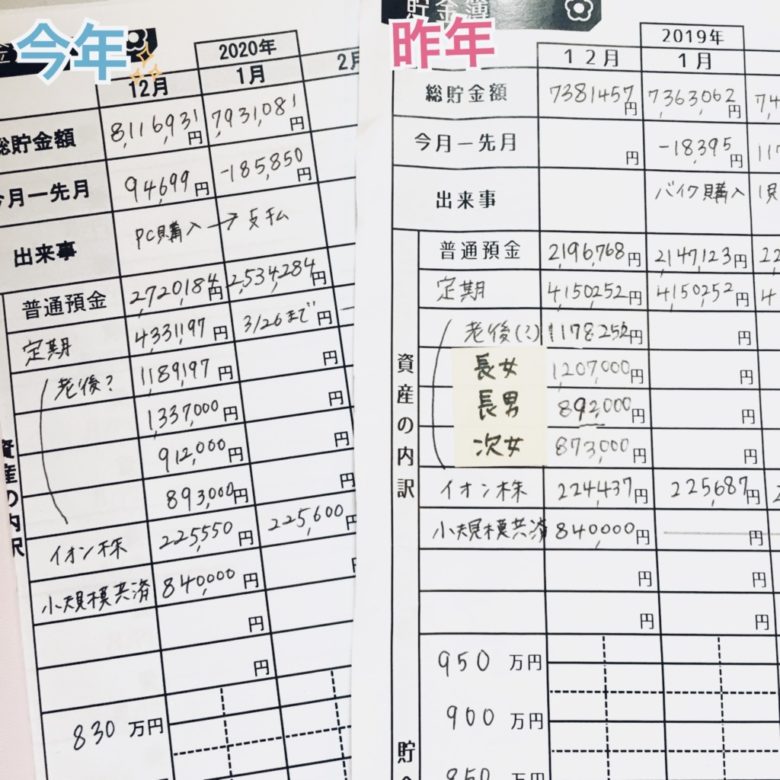 今年
2020年
12月 1月 2月
総貯金額 8,116,931円 7,931,081円
今月一先月 94,699円 -185,850円
出来事 PC購入→支払
普通預金 2,720,184円 2,534,284円
定期 4331,197円 3/26まで円
老後? 1,189,197円 円
1,337,000円 円
912,000円 円
893,000円 円
イオン株 225,550円 225,600円
小規模共済 840,000円
円
円
資産の内訳
830 万円
貯金簿
昨年
2019年
12月 1月
総貯金額 7381457円 7,363,062円
今月一先月 円 -18,395円
出来事 バイク購入
普通預金 2,196,768円 2,147,123円
定期 4,150,252円 4,150,252円
老後(?) 1,178,252円 円
長女 1,207,000円 円
長男 892,000円 円
次女 873,000円 円
イオン株 224,437円 225,687円
小規模共済 840,000円 円
円 円
円 円
資産の内訳
950 万円
900 万円
850 万円